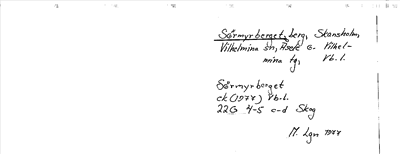 Sörmyrberget, berg, Skansholm,
Vilhelmina sn, Åsele o. Vilhel-
mina tg, Vb.l.
Sörmyrberget
ek (1977) Vb.l.
22G 4-5 c-d Skog
M. Lgn 1977